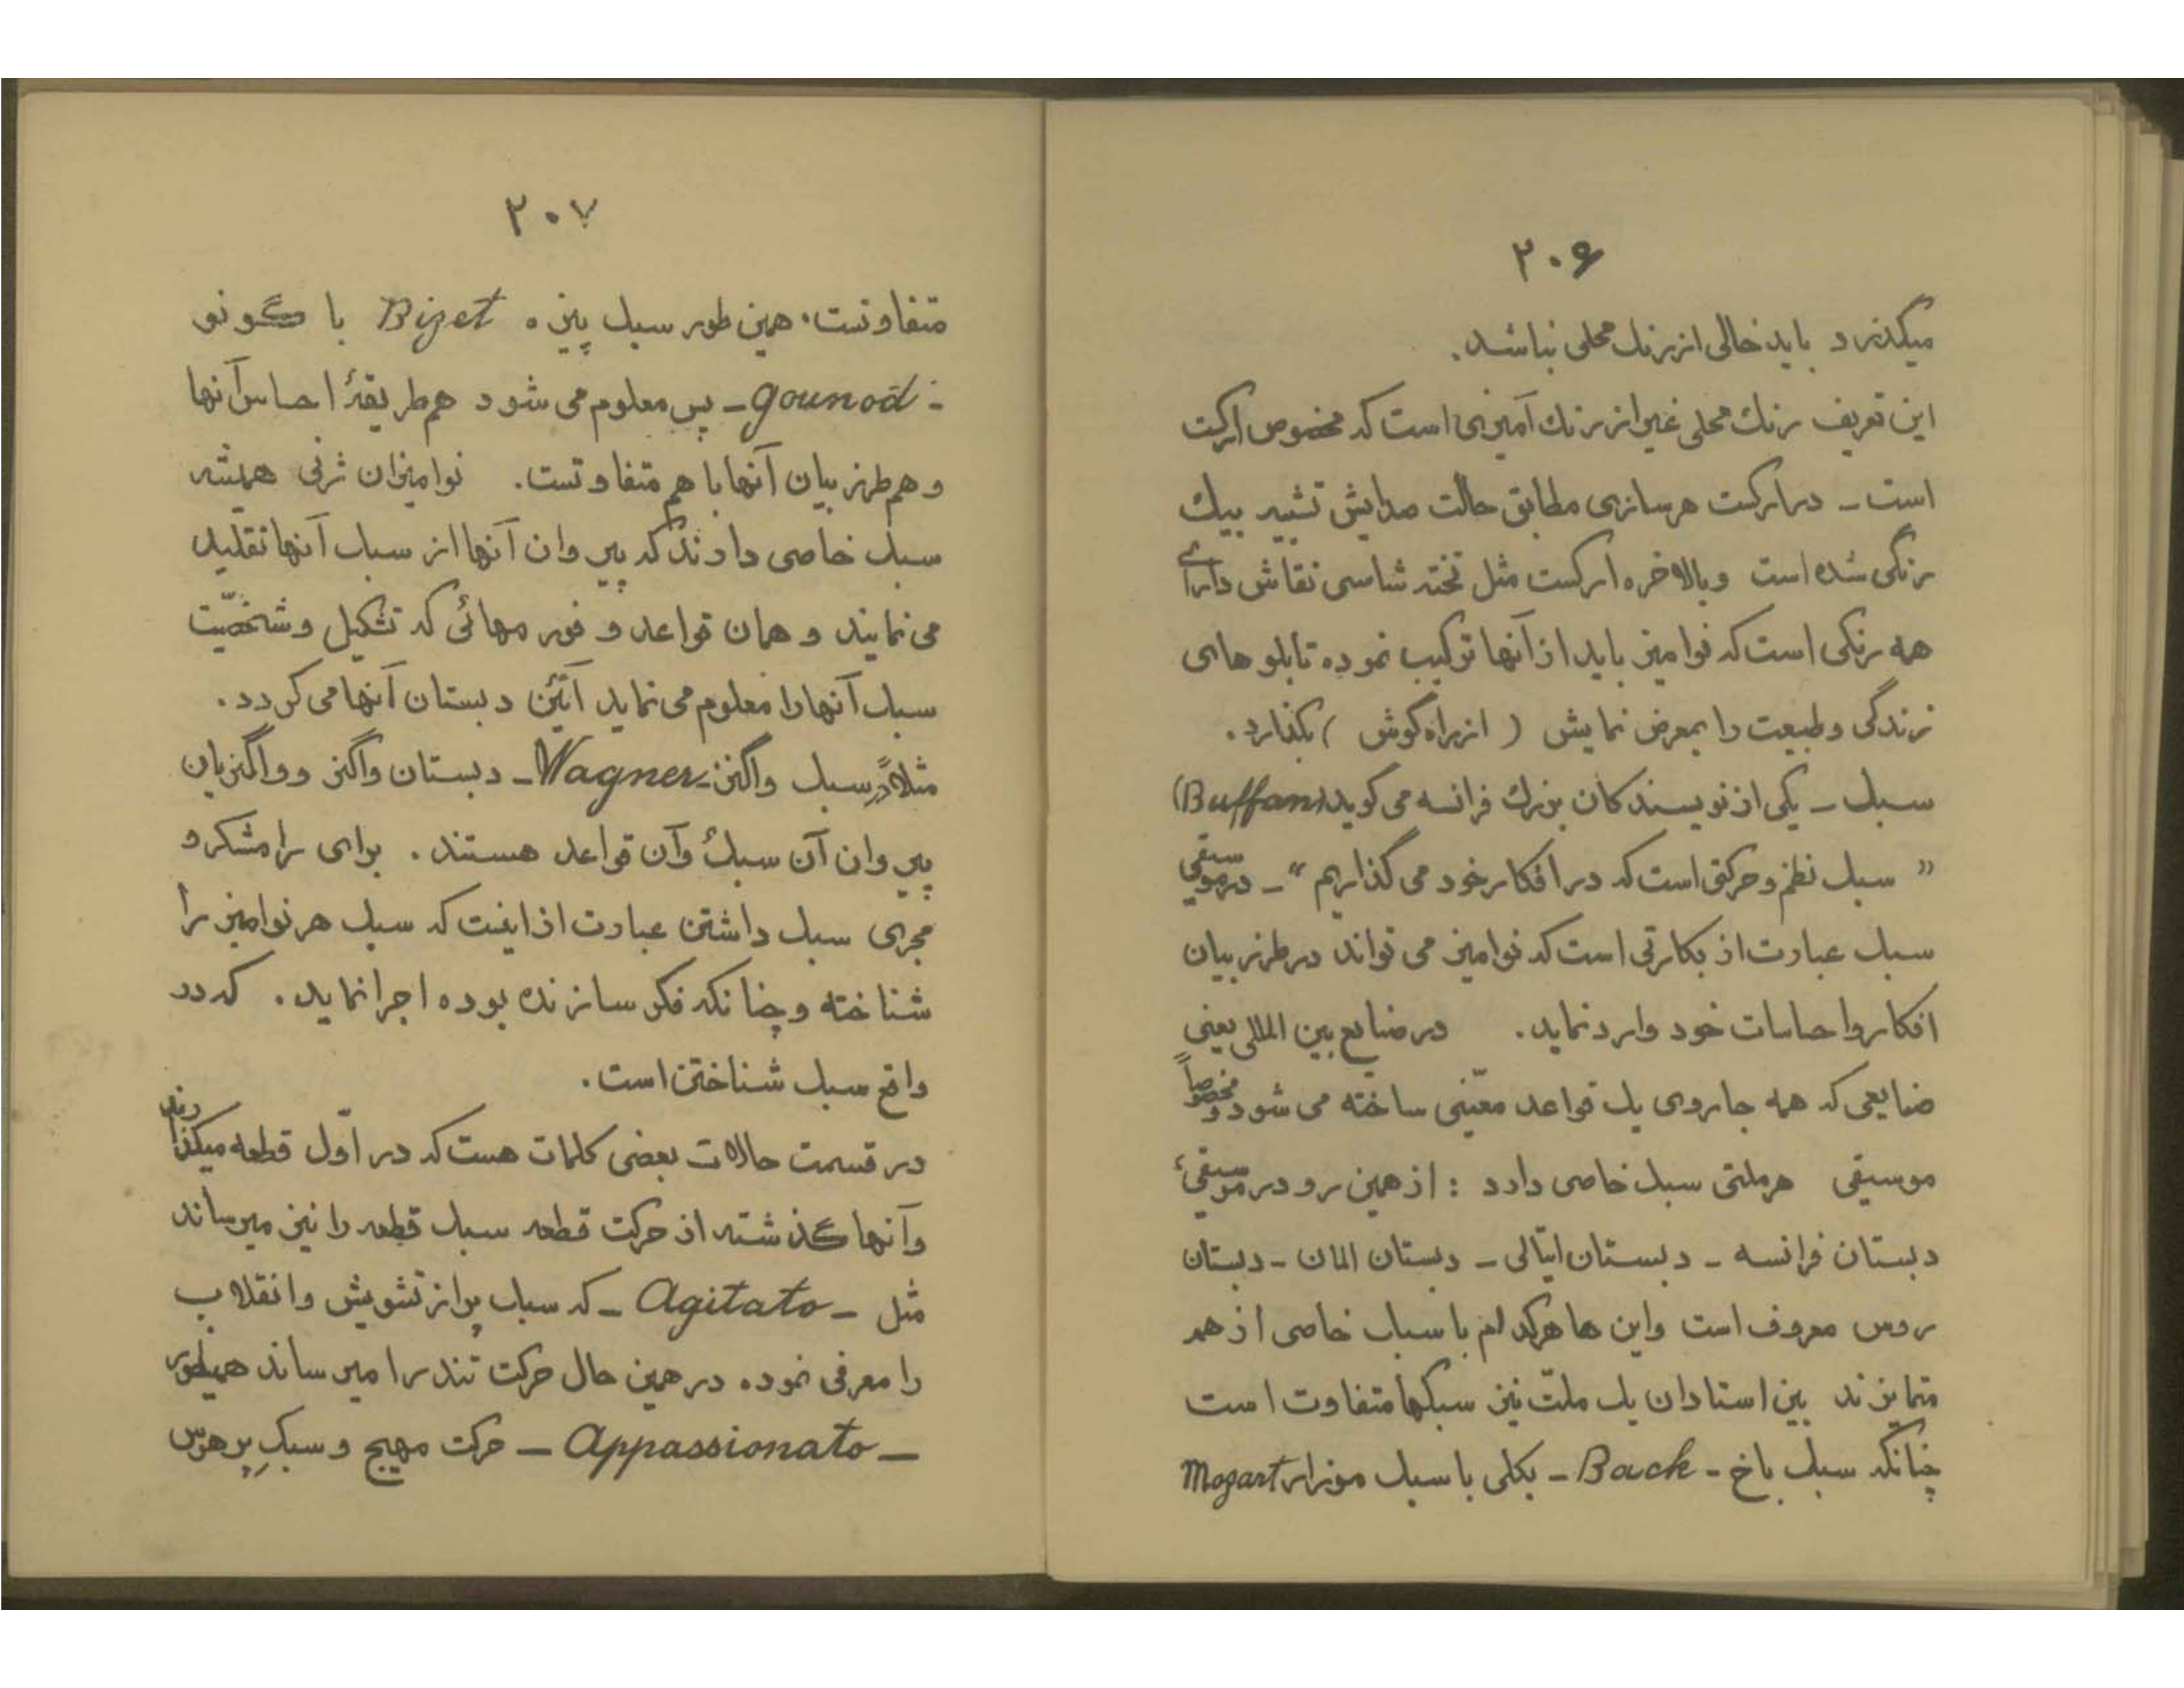 ۲۰۶
میگذرد باید خالی از رنك محلی نباشد.
این تعریف رنك محلی غیر از رنك آمیزی است که مخصوص ارکست
است ـ در ارکست هر سازی مطابق حالت صدایش تشبیه بیك
رنگی شده است وبالاخره ارکست مثل تخته شاسی نقاش دارای
همه رنکی است که نوامیز باید از آنها ترکیب نموده تابلوهای
زندگی وطبیعت را بمعرض نمایش ( از راه گوش ) بگذارد.
سبك ـ یکی از نویسندکان بزرك فرانسه می گوید (Buffan)
« سبك نظم و حرکتی است که در افکار خود می گذاریم » ـ در موسیقی
سبك عبارت از بکارتی است که نوامیز می تواند در طرز بیان
افکار واحساسات خود وارد نماید. در صنایع بین المللی یعنی
صنایعی که همه جا روی یك قواعد معیّنی ساخته می شود و مخصوصاً
موسیقی هر ملتی سبك خاصی دارد : از همین رو در موسیقیٔ
دبستان فرانسه ـ دبستان ایتالی ـ دبستان المان ـ دبستان
روس معروف است واین ها هرکدام با سبك خاصی از هم
متمایزند بین استادان یك ملّت نیز سبکها متفاوت است
چنانکه سبك باخ ـ Back ـ بکلی با سبك موزار Mozart
۲۰۷
متفاوتست. همین طور سبك بیزه Bizet با گونو
ـ gounod ـ پس معلوم می شود هم طریقهٔ احساس آنها
و هم طرز بیان آنها با هم متفاوتست. نوامیزان ژنی همیشه
سبك خاصی دارند که پیروان آنها از سبك آنها تقلید
می نمایند و همان قواعد و فورمهائی که تشکیل وشخصیّت
سبك آنها را معلوم می نماید آئین دبستان آنها می کردد.
مثلاً در سبك واگنر ـ Wagner ـ دبستان واگنر وواگنریان
پیروان آن سبك وآن قواعد هستند. برای رامشکر و
مجری سبك داشتن عبارت از اینست که سبك هر نوامیز را
شناخته وچنانکه فکر سازنده بوده اجرا نماید. که در
واقع سبك شناختن است.
در قسمت حالات بعضی کلمات هست که در اوّل قطعه میکذارند
وآنها گذشته از حرکت قطعه سبك قطعه را نیز میرساند
مثل ـ Agitato ـ که سبك پر از تشویش وانقلاب
را معرفی نموده در همین حال حرکت تند را میرساند همینطور
ـ Appassionato ـ حرکت مهیج و سبكِ پر هوس